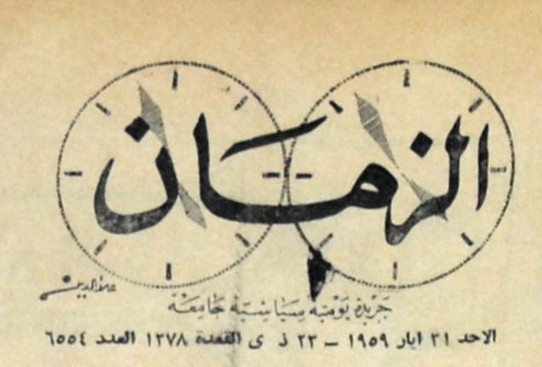 الزمان
علاء الدين
جريدة يومية سياسية جامعة
الاحد ٣١ ايار ١٩٥٩ – ٢٣ ذ ى القعدة ١٣٧٨ العدد ٦٥٥٤